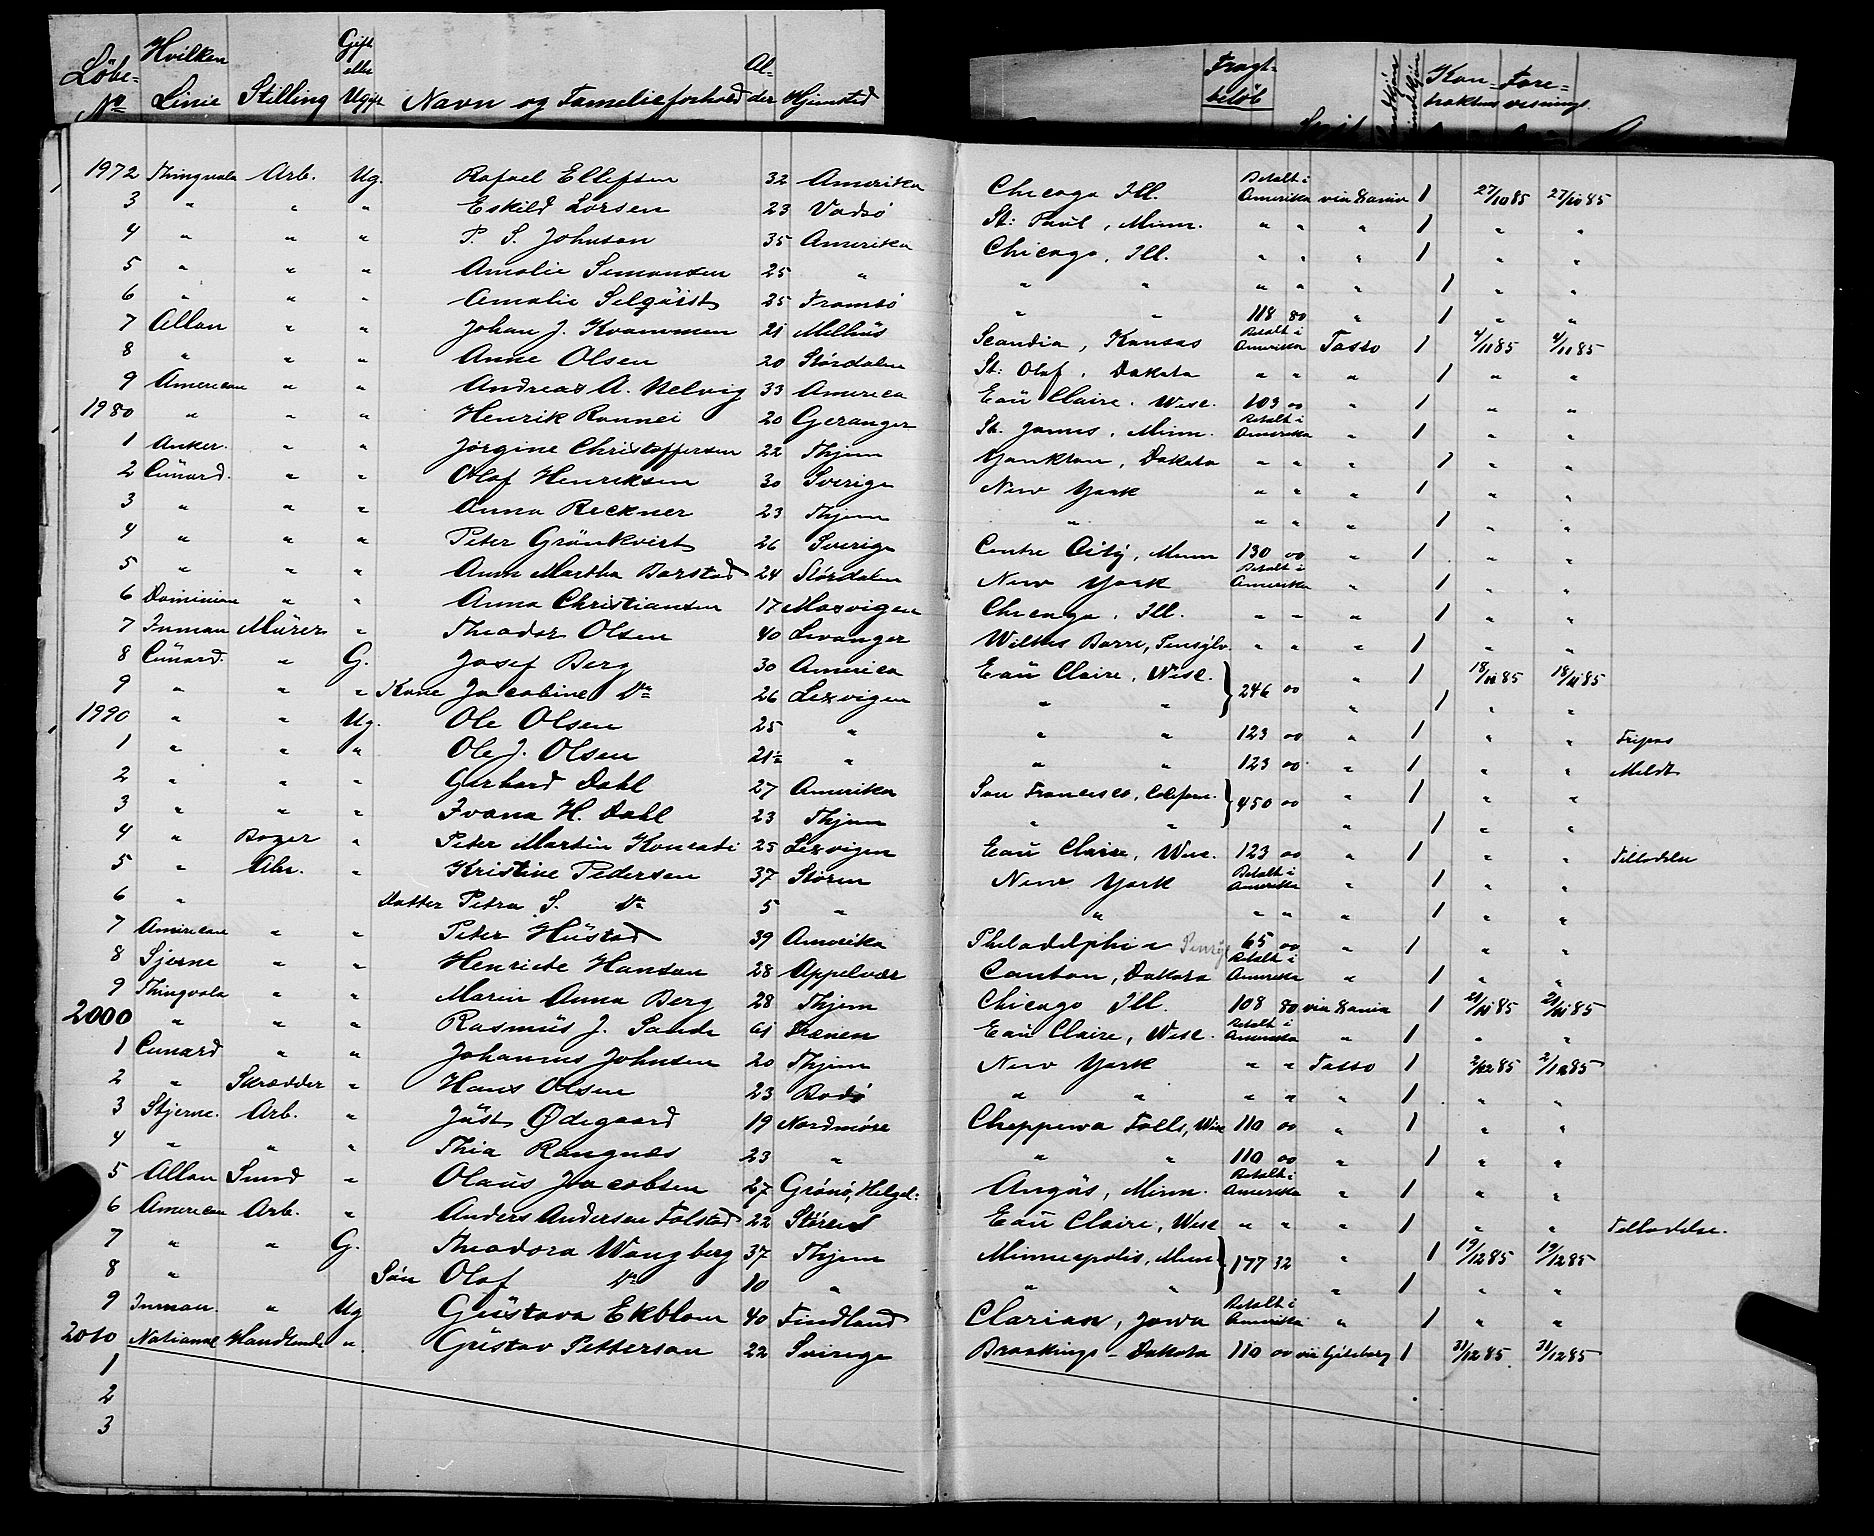 Löbe- No Hvilken Linie Stilling Gift eller Ugift Navn og Familieforhold Al- der Hjemsted Fragt- beløb Kon- trakten Fore- visnings
1972 Thingvala Arb. Ug. Rafael Ellefsen 32 Amerika Chicago Ill. Betalt i Amerika via Dania 1 27/10 85 27/10 85
3 " " " Eskild Larsen 23 Vadsö St: Paul, Minn. " " " 1 " "
4 " " " P. S. Johnson 35 Amerika Chicago, Ill. " " " 1 " "
5 " " " Amalie Simonsen 25 " " " " " " 1 " "
6 " " " Amalie Selqüist 25 Tromsö " " 118 80 " 1 " "
7 Allan " " Johan J. Kvammen 21 Melhüs Scandia, Kansas Betalt i Amerika Tasso 1 4/11 85 4/11 85
8 " " " Anne Olsen 20 Stördalen St: Olaf, Dakota " " " 1 " "
9 American " " Andreas A. Helvig 33 America Eaü Claire, Wisc. 103 00 " 1 " "
1980 " " " Henrik Rannei 20 Geranger St. James, Minn. Betalt i Amerika " 1 " "
1 Anker. " " Jörgine Christoffersen 22 Thjem Yankton, Dakota " " " 1 " "
2 Cünard. " " Olaf Henriksen 30 Sverige New York " " " 1 " "
3 " " " Anna Reckner 23 Thjem " " " " 1 " "
4 " " " Peter Grönkvist 26 Sverige Centre City, Minn 130 00 " 1 " "
5 " " " Ann Martha Barstad 24 Stördalen New York Betalt i Amerika " 1 " "
6 Dominion " " Anna Christiansen 17 Mosvigen Chicago, Ill. " " " 1 " "
7 Inman Mürer " Theodor Olsen 40 Levanger Wilkes Barre, Pensylv. " " " 1 " "
8 Cünard. " G. Josef Berg 30 America Eaü Claire, Wisc. } 246 00 " 1 18/11 85 18/11 85
9 " " " Kone Jacobine Do 26 Lexvigen " " " 1 " "
1990 " " Ug. Ole Olsen 25 " " " 123 00 " 1 " " Fripas
1 " " " Ole J. Olsen 21½ " " " 123 00 " 1 " " Meldt
2 " " " Gerhard Dahl 27 Amerika San Francisco, Californ. } 450 00 " 1 " "
3 " " " Ivana H. Dahl 23 Thjem " " " 1 " "
4 " Bager " Peter Martin Konradi 25 Lexvigen Eaü Claire, Wisc. 123 00 " 1 " " Tilladelse
5 " Arb. " Kristine Pedersen 37 Stören New York Betalt i Amerika " 1 " "
6 " Datter Petra S. Do 5 " " " " " 1 " "
7 American " " Peter Hüstad 39 Amerika Philadelphia Pensyl 65 00 " 1 " "
8 Stjerne " " Henriete Hansen 28 Appelvær Canton, Dakota Betalt i Amerika " 1 " "
9 Thingvala " " Marin Anna Berg 28 Thjem Chicago Ill. 108 80 via Dania 1 21/11 85 21/11 85
2000 " " " Rasmüs J. Sande 61 Eaü Claire, Wisc. Betalt i Amerika " 1 " "
1 Cunard " " Johannes Johnsen 20 Thjem New York " " Tasso 1 2/12 85 2/12 85
2 " Skrædder " Hans Olsen 23 Bodö " " " " " 1 " "
3 Stjerne. Arb. " Jüst Ødegaard 19 Nordmöre Cheppewa Falls, Wisc 110 00 " 1 " "
4 " " " Thia Rangnes 23 " " " 110 00 " 1 " "
5 Allan Smed " Olaüs Jacobsen 27 Grönö, Helgel: Angüs, Minn. Betalt i Amerika " 1 " "
6 American Arb. " Anders Andersen Folstad 22 Stören Eaü Claire, Wisc " " " 1 " " Tilladelse.
7 " " G. Theodora Wangberg 37 Thjem Minneapolis, Minn } 177 32 " 1 19/12 85 19/12 85
8 " Sön Olaf Do 10 " " " " 1 " "
9 Inman. " Ug Güstava Ekblom 40 Findland Clarion, Jowa Betalt i Amerika " 1 " "
2010 National Handlende " Güstav Petterson 22 Sverige Brookings - Dakota 110 00 via Göteborg 1 31/12 85. 31/12 85
1
2
3